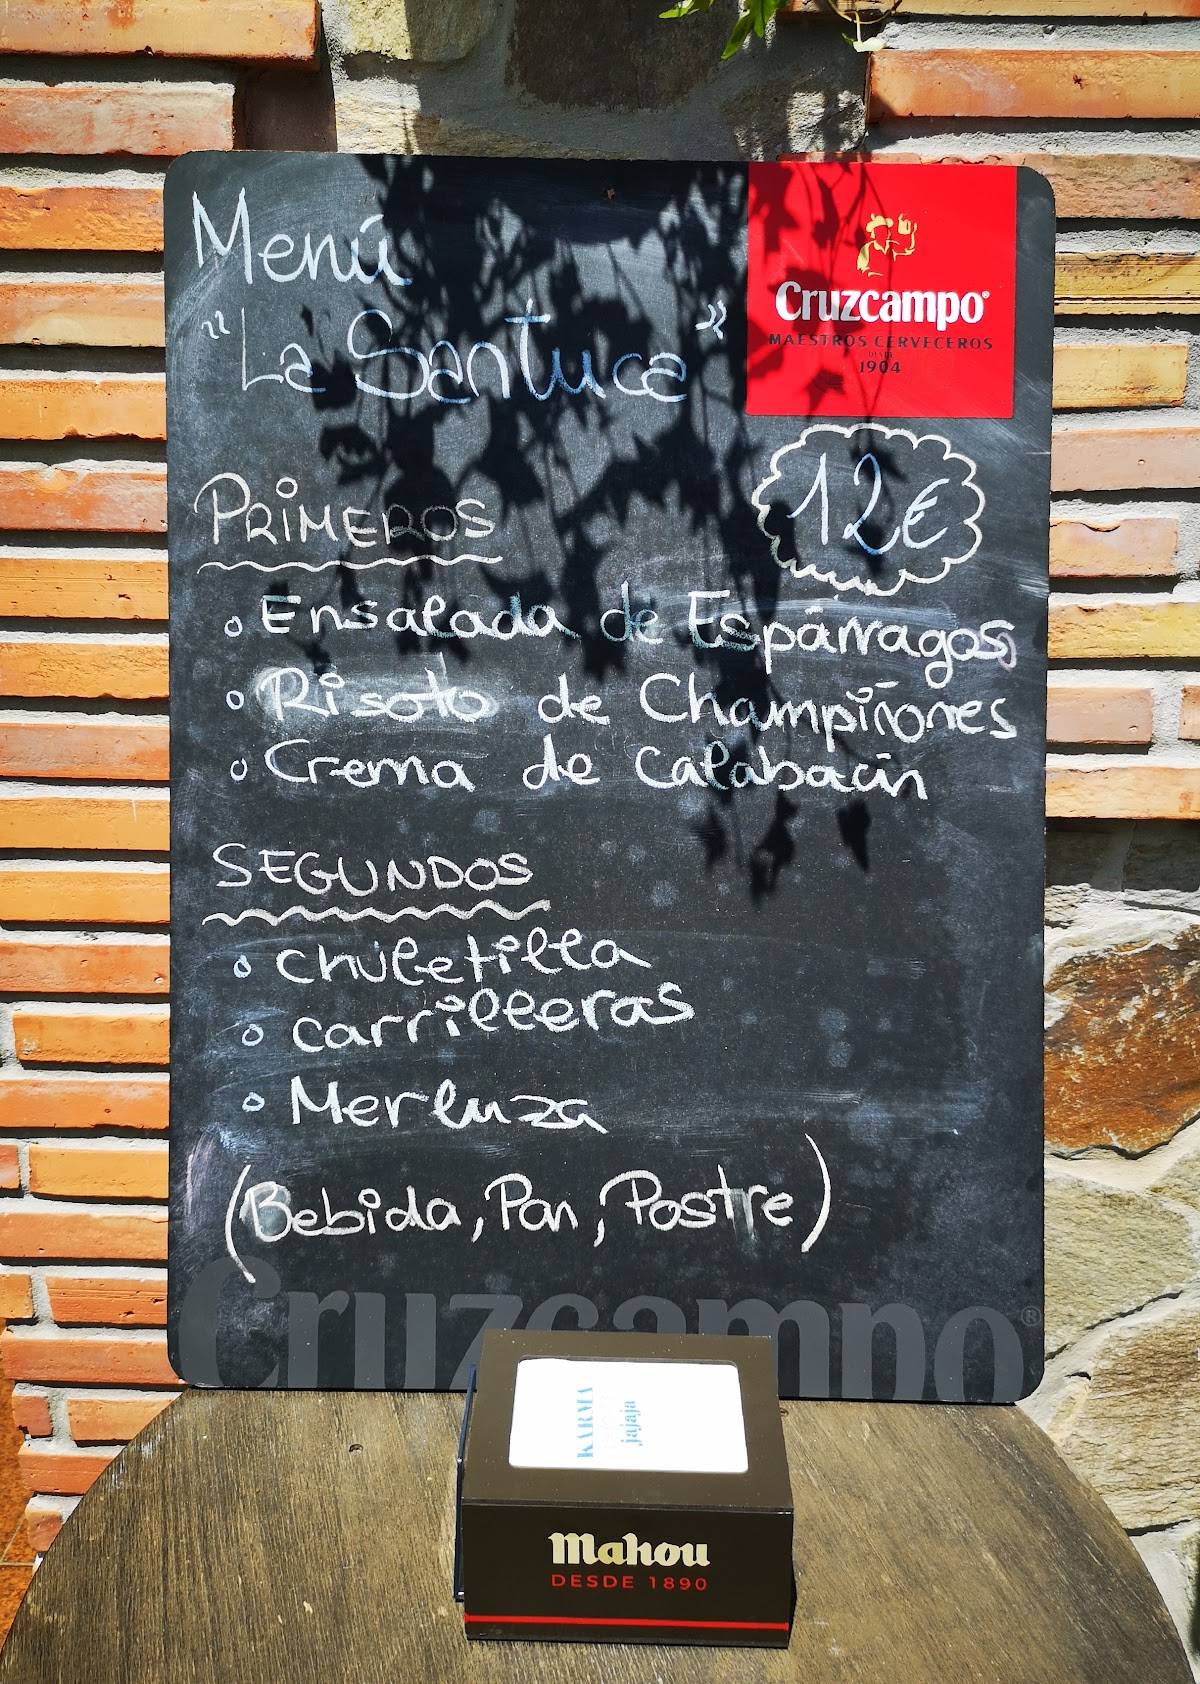 Menú
"La Santuca"
Cruzcampo®
MAESTROS CERVECEROS
DESDE
1904
12€
PRIMEROS
Ensalada de Espárragos
Risoto de Champiñones
Crema de Calabacín
SEGUNDOS
Chuletilla
Carrilleras
Merluza
(Bebida, Pan, Postre)
Cruzcampo®
KARMA
jajaja
Mahou
DESDE 1890